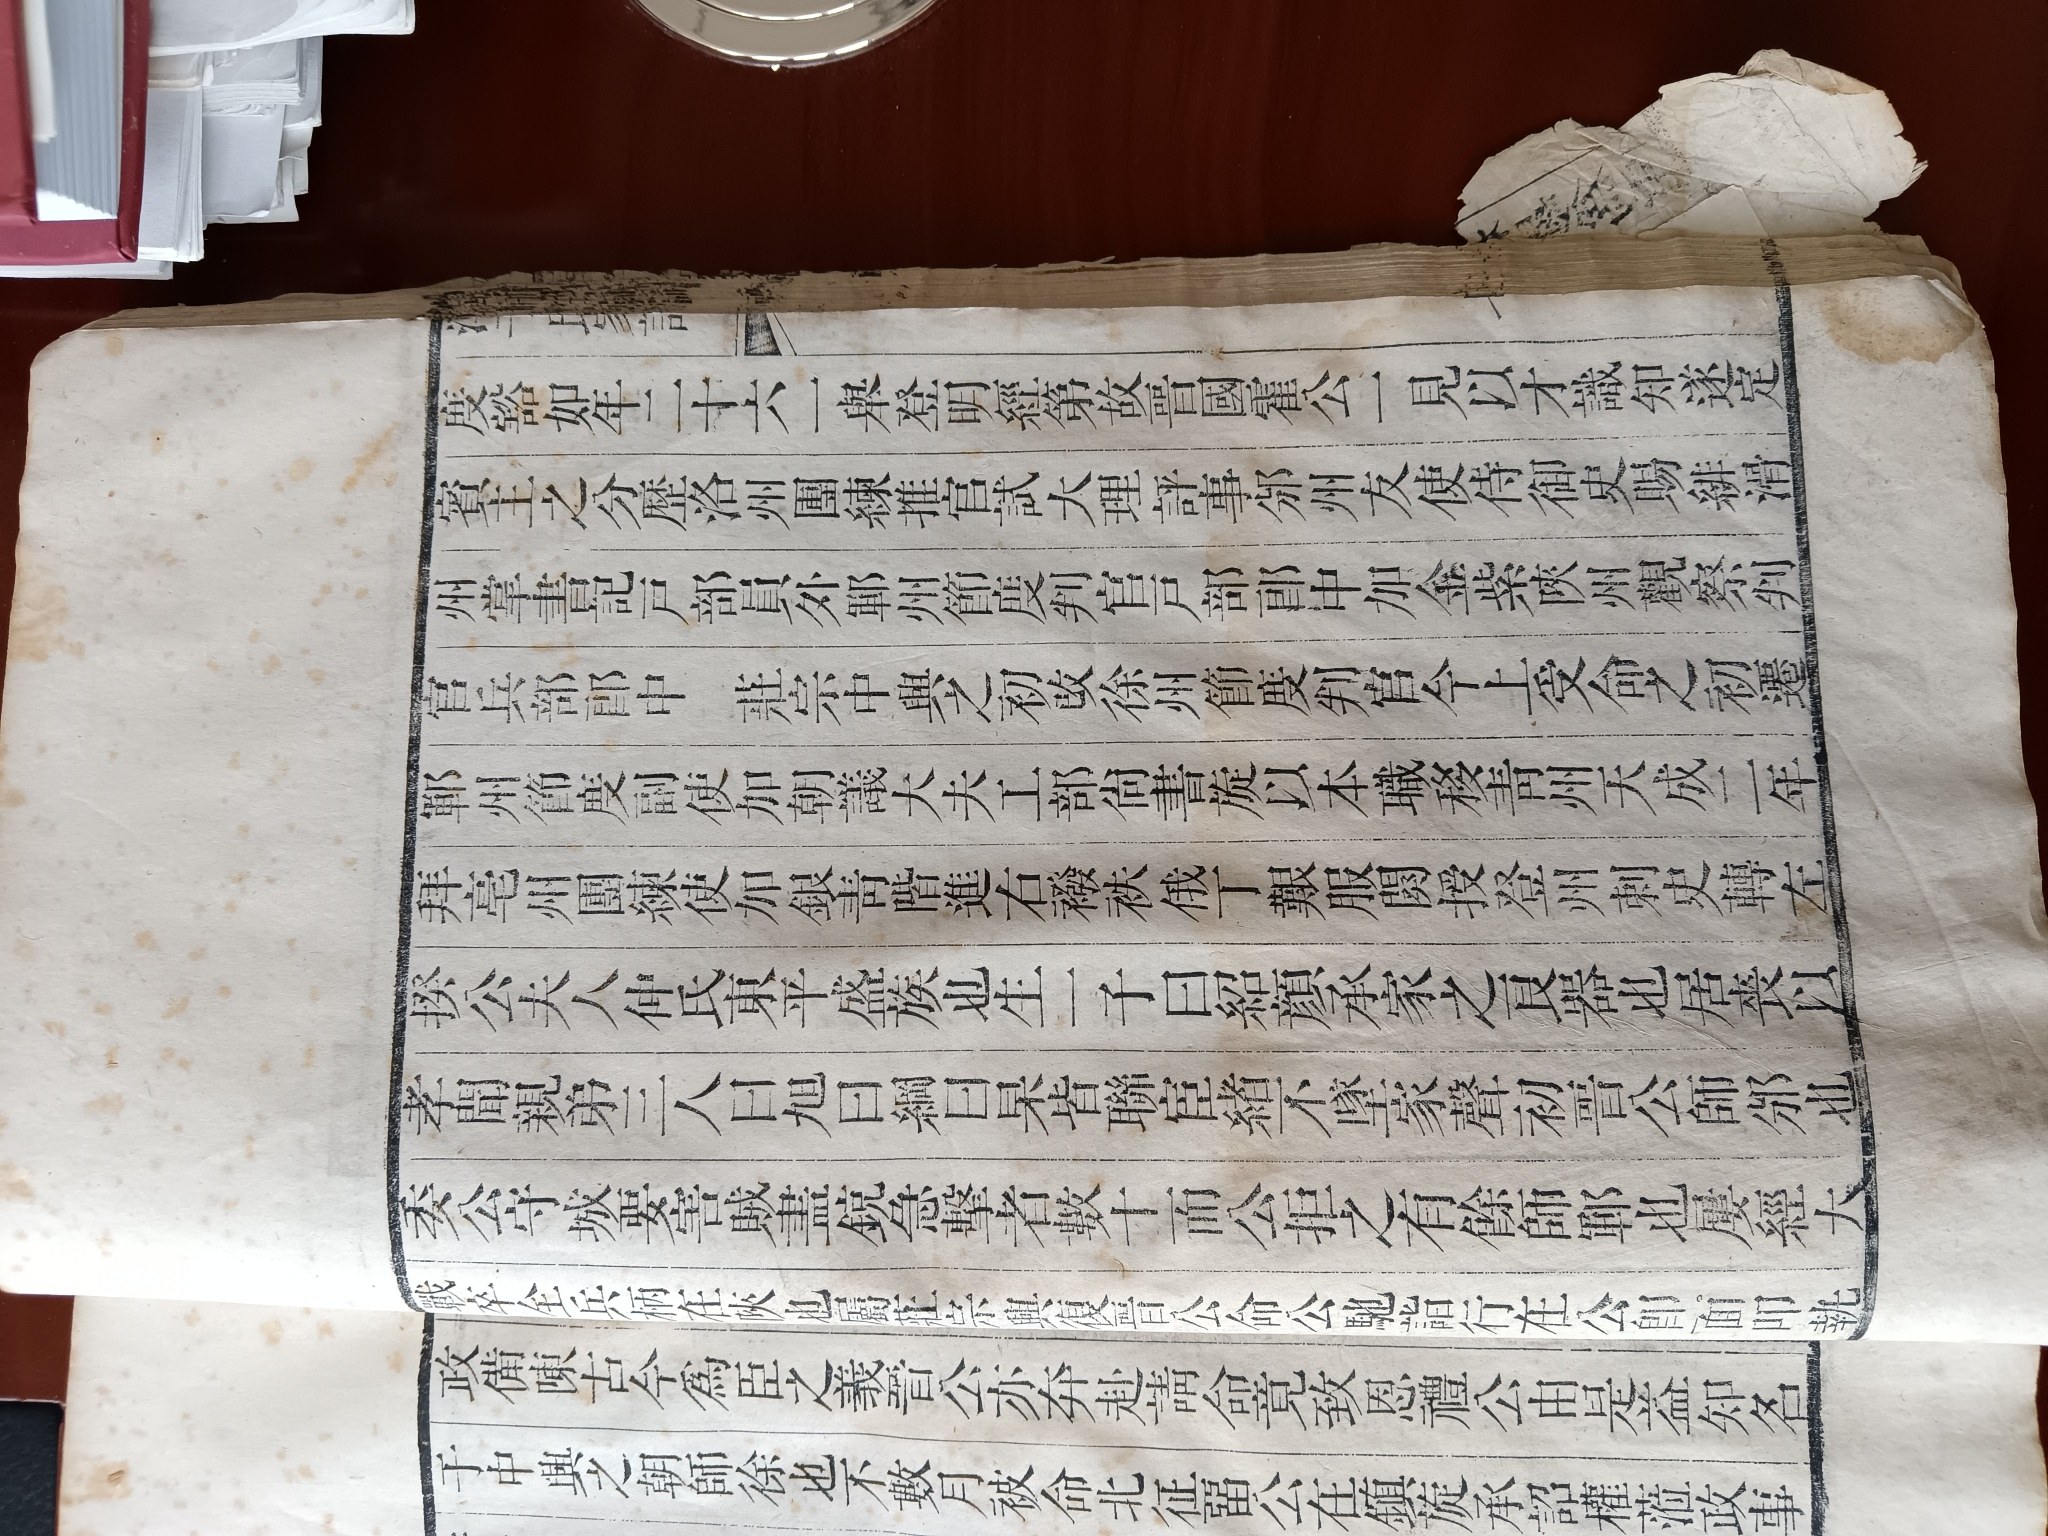 度豁如年二十六一舉登明經第故晉國霍公一見以才識知遂定
賓主之分歷洺州團練推官試大理評事邠州友使侍御史賜緋滑
州掌書記戶部員外鄆州節度判官戶部郎中加金紫陝州觀察判
官兵部郎中　莊宗中興之初改徐州節度判官今上受命之初遷
鄆州節度副使加朝議大夫工部尚書旋以本職移青州天成二年
拜亳州團練使加銀青階進右秩俄丁艱服闋授登州刺史轉左
揆公夫人仲氏東平盛族也生一子曰紹顏承家之良器也居喪以
孝聞親弟三人曰旭曰綱曰杲皆聯宦緒不墜家聲初晉公師邠也
委公守城要害賊盡銳急擊者數十而公拒之有餘師鄆也屢經大
戰卒全兵柄在陝也屬莊宗興復晉公命公馳詣行在公卽面叩執
政備陳古今為臣之義晉公亦奔赴請命竟致恩禮公由是益知名
于中興之朝師徐也不數月被命北征留公在鎮旋承詔權蒞政事